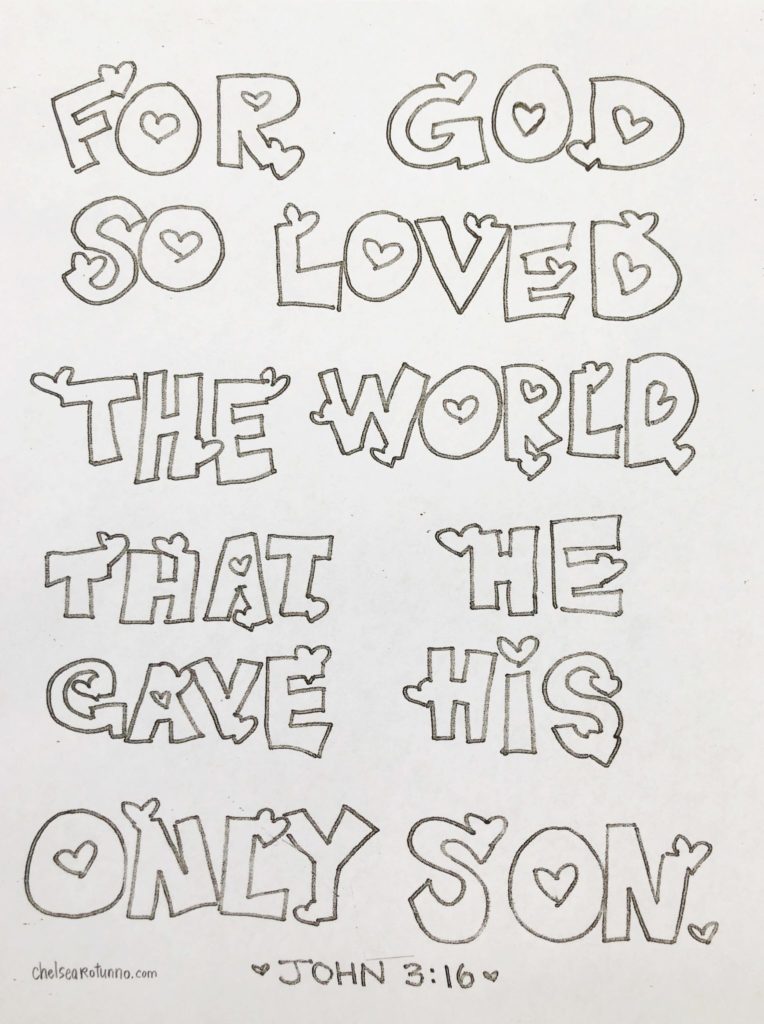 FOR GOD
SO LOVED
THE WORLD
THAT HE
GAVE HiS
ONLY SON.
chelsearotunno.com
JOHN 3:16